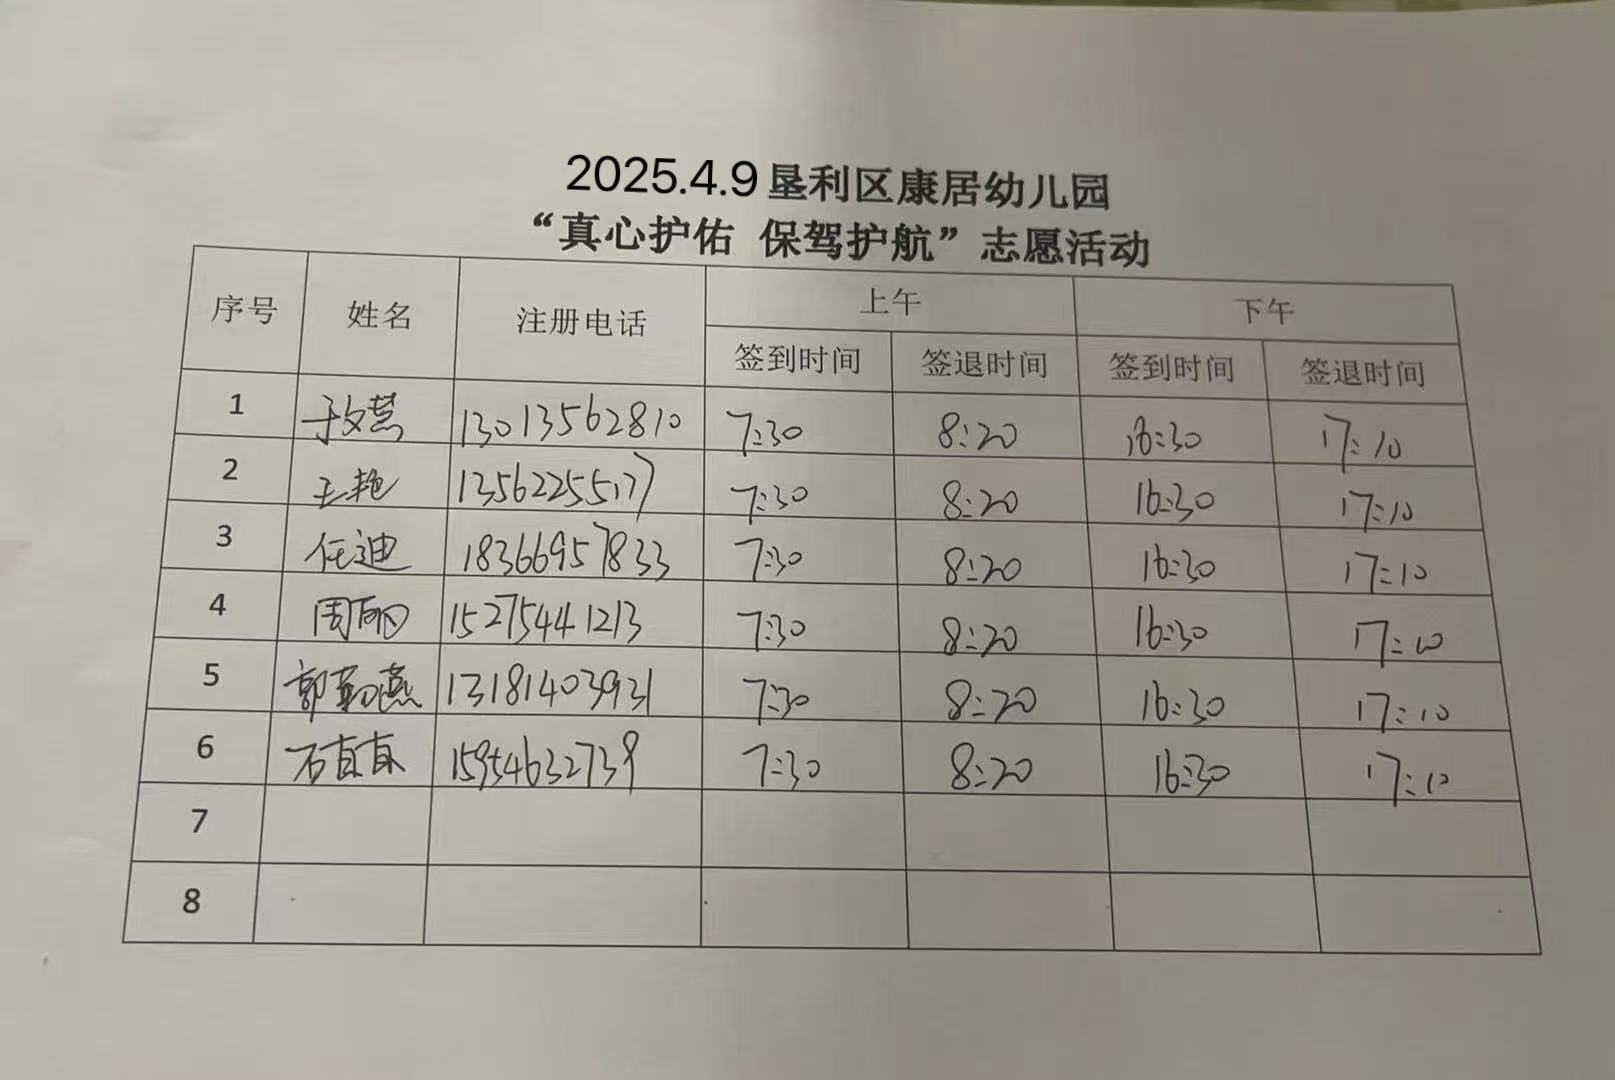 2025.4.9垦利区康居幼儿园
“真心护佑 保驾护航”志愿活动
序号 姓名 注册电话 上午 下午
签到时间 签退时间 签到时间 签退时间
1 于文慧 13013562810 7:30 8:20 16:30 17:10
2 王艳 13562255177 7:30 8:20 16:30 17:10
3 任迪 18366957833 7:30 8:20 16:30 17:10
4 周丽 15275441213 7:30 8:20 16:30 17:10
5 郭勤燕 13181403931 7:30 8:20 16:30 17:10
6 石真真 15954632739 7:30 8:20 16:30 17:10
7
8